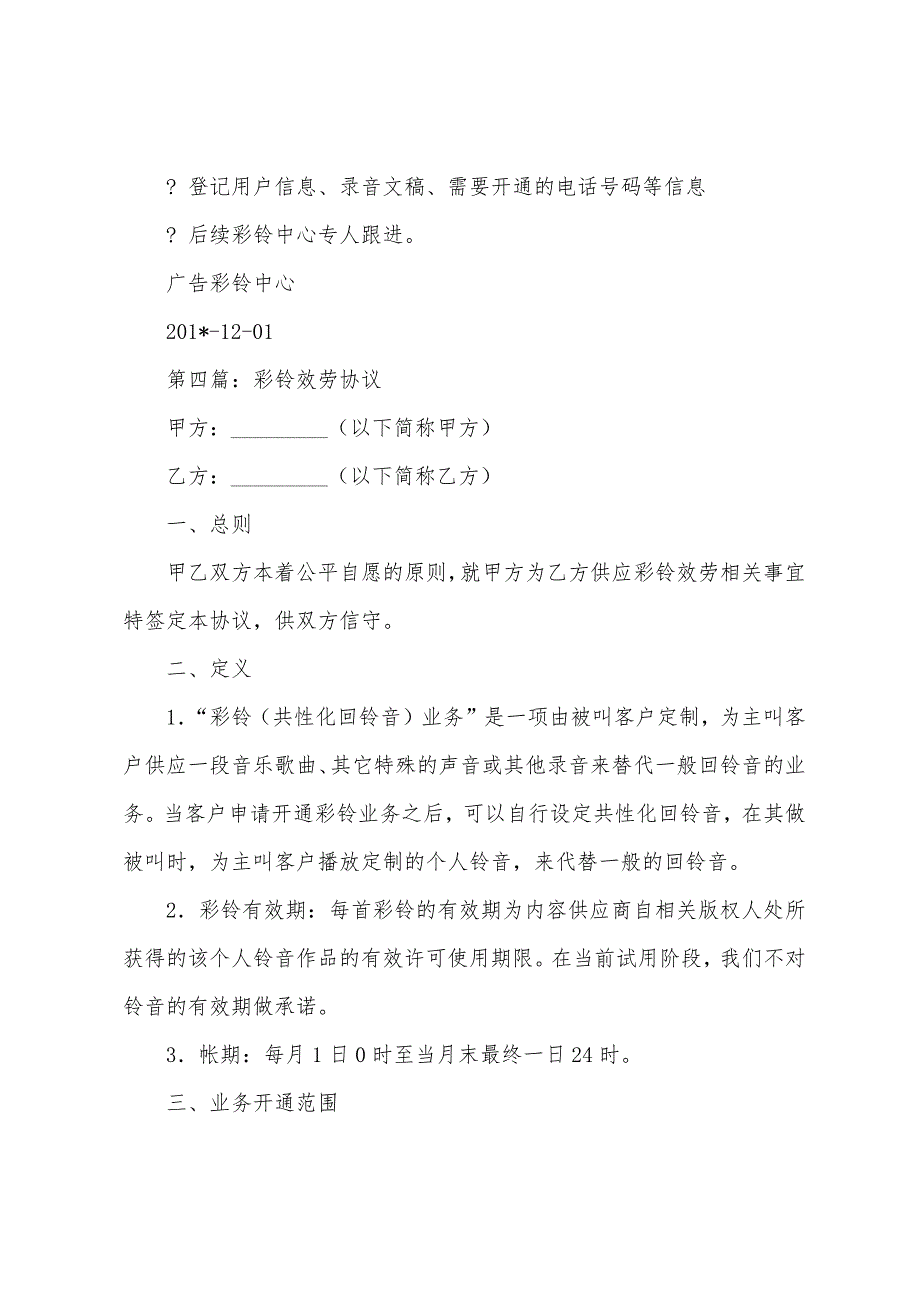 ? 登记用户信息、录音文稿、需要开通的电话号码等信息
? 后续彩铃中心专人跟进。
广告彩铃中心
201*-12-01
第四篇：彩铃效劳协议
甲方：_________（以下简称甲方）
乙方：_________（以下简称乙方）
一、总则
甲乙双方本着公平自愿的原则，就甲方为乙方供应彩铃效劳相关事宜
特签定本协议，供双方信守。
二、定义
1．“彩铃（共性化回铃音）业务”是一项由被叫客户定制，为主叫客
户供应一段音乐歌曲、其它特殊的声音或其他录音来替代一般回铃音的业
务。当客户申请开通彩铃业务之后，可以自行设定共性化回铃音，在其做
被叫时，为主叫客户播放定制的个人铃音，来代替一般的回铃音。
2．彩铃有效期：每首彩铃的有效期为内容供应商自相关版权人处所
获得的该个人铃音作品的有效许可使用期限。在当前试用阶段，我们不对
铃音的有效期做承诺。
3．帐期：每月1日0时至当月末最终一日24时。
三、业务开通范围